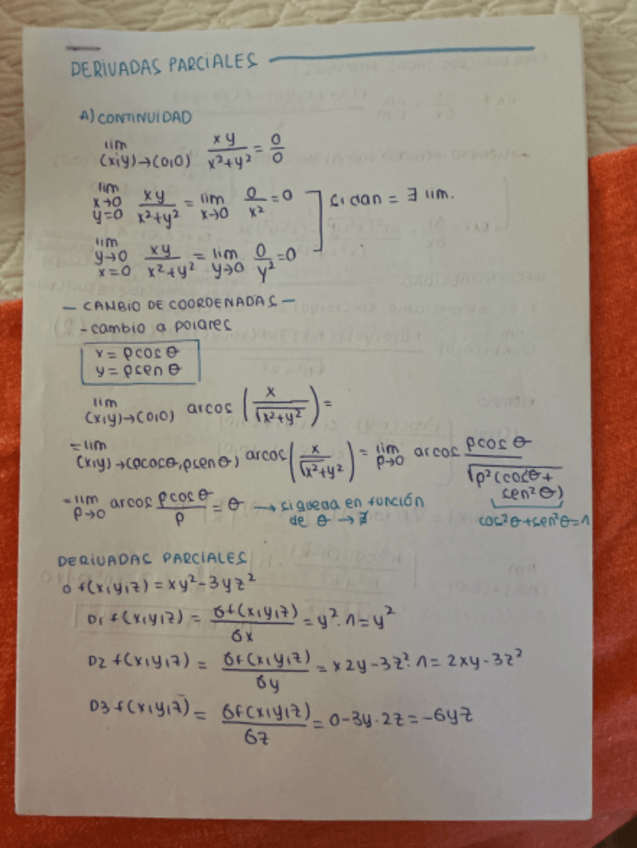 DERIVADAS PARCIALES
A) CONTINUIDAD
lim (x,y)→(0,0) xy/(x²+y²) = 0/0
lim x→0 y=0 xy/(x²+y²) = lim x→0 0/x² = 0
si dan = ∃ lim.
lim y→0 x=0 xy/(x²+y²) = lim y→0 0/y² = 0
— CAMBIO DE COORDENADAS —
- cambio a polares
x = ρcos θ
y = ρsen θ
lim (x,y)→(0,0) arcos (x/√(x²+y²)) =
= lim (x,y)→(ρcosθ,ρsenθ) arcos (x/√(x²+y²)) = lim ρ→0 arcos ρcos θ/√(ρ²(cos²θ + sen²θ))
cos²θ + sen²θ = 1
= lim ρ→0 arcos ρcos θ/ρ = θ → si queda en función
de θ → ∄
DERIVADAS PARCIALES
○ f(x,y,z) = xy² - 3yz²
D1 f(x,y,z) = δf(x,y,z)/δx = y²·1 = y²
D2 f(x,y,z) = δf(x,y,z)/δy = x2y - 3z²·1 = 2xy - 3z²
D3 f(x,y,z) = δf(x,y,z)/δz = 0 - 3y·2z = -6yz